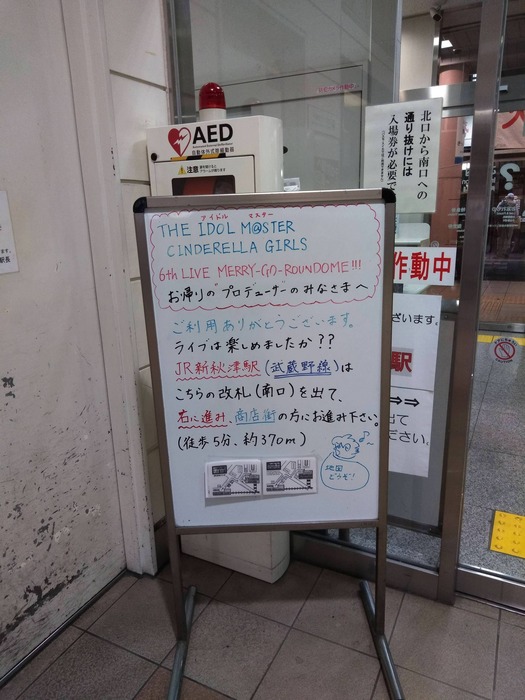 AED
自動体外式除細動器
注意
北口から南口への
通り抜けには
入場券が必要で
作動中
アイドル マスター
THE IDOL M@STER
CINDERELLA GIRLS
6th LIVE MERRY-GO-ROUNDOME!!!
お帰りの"プロデューサー"のみなさまへ
ご利用ありがとうございます。
ライブは楽しめましたか??
JR新秋津駅(武蔵野線)は
こちらの改札(南口)を出て、
右に進み、商店街の方にお進み下さい。
(徒歩5分、約370m)
地図
どうぞ!
ざいます。
駅
⇒⇒
出て
ださい。